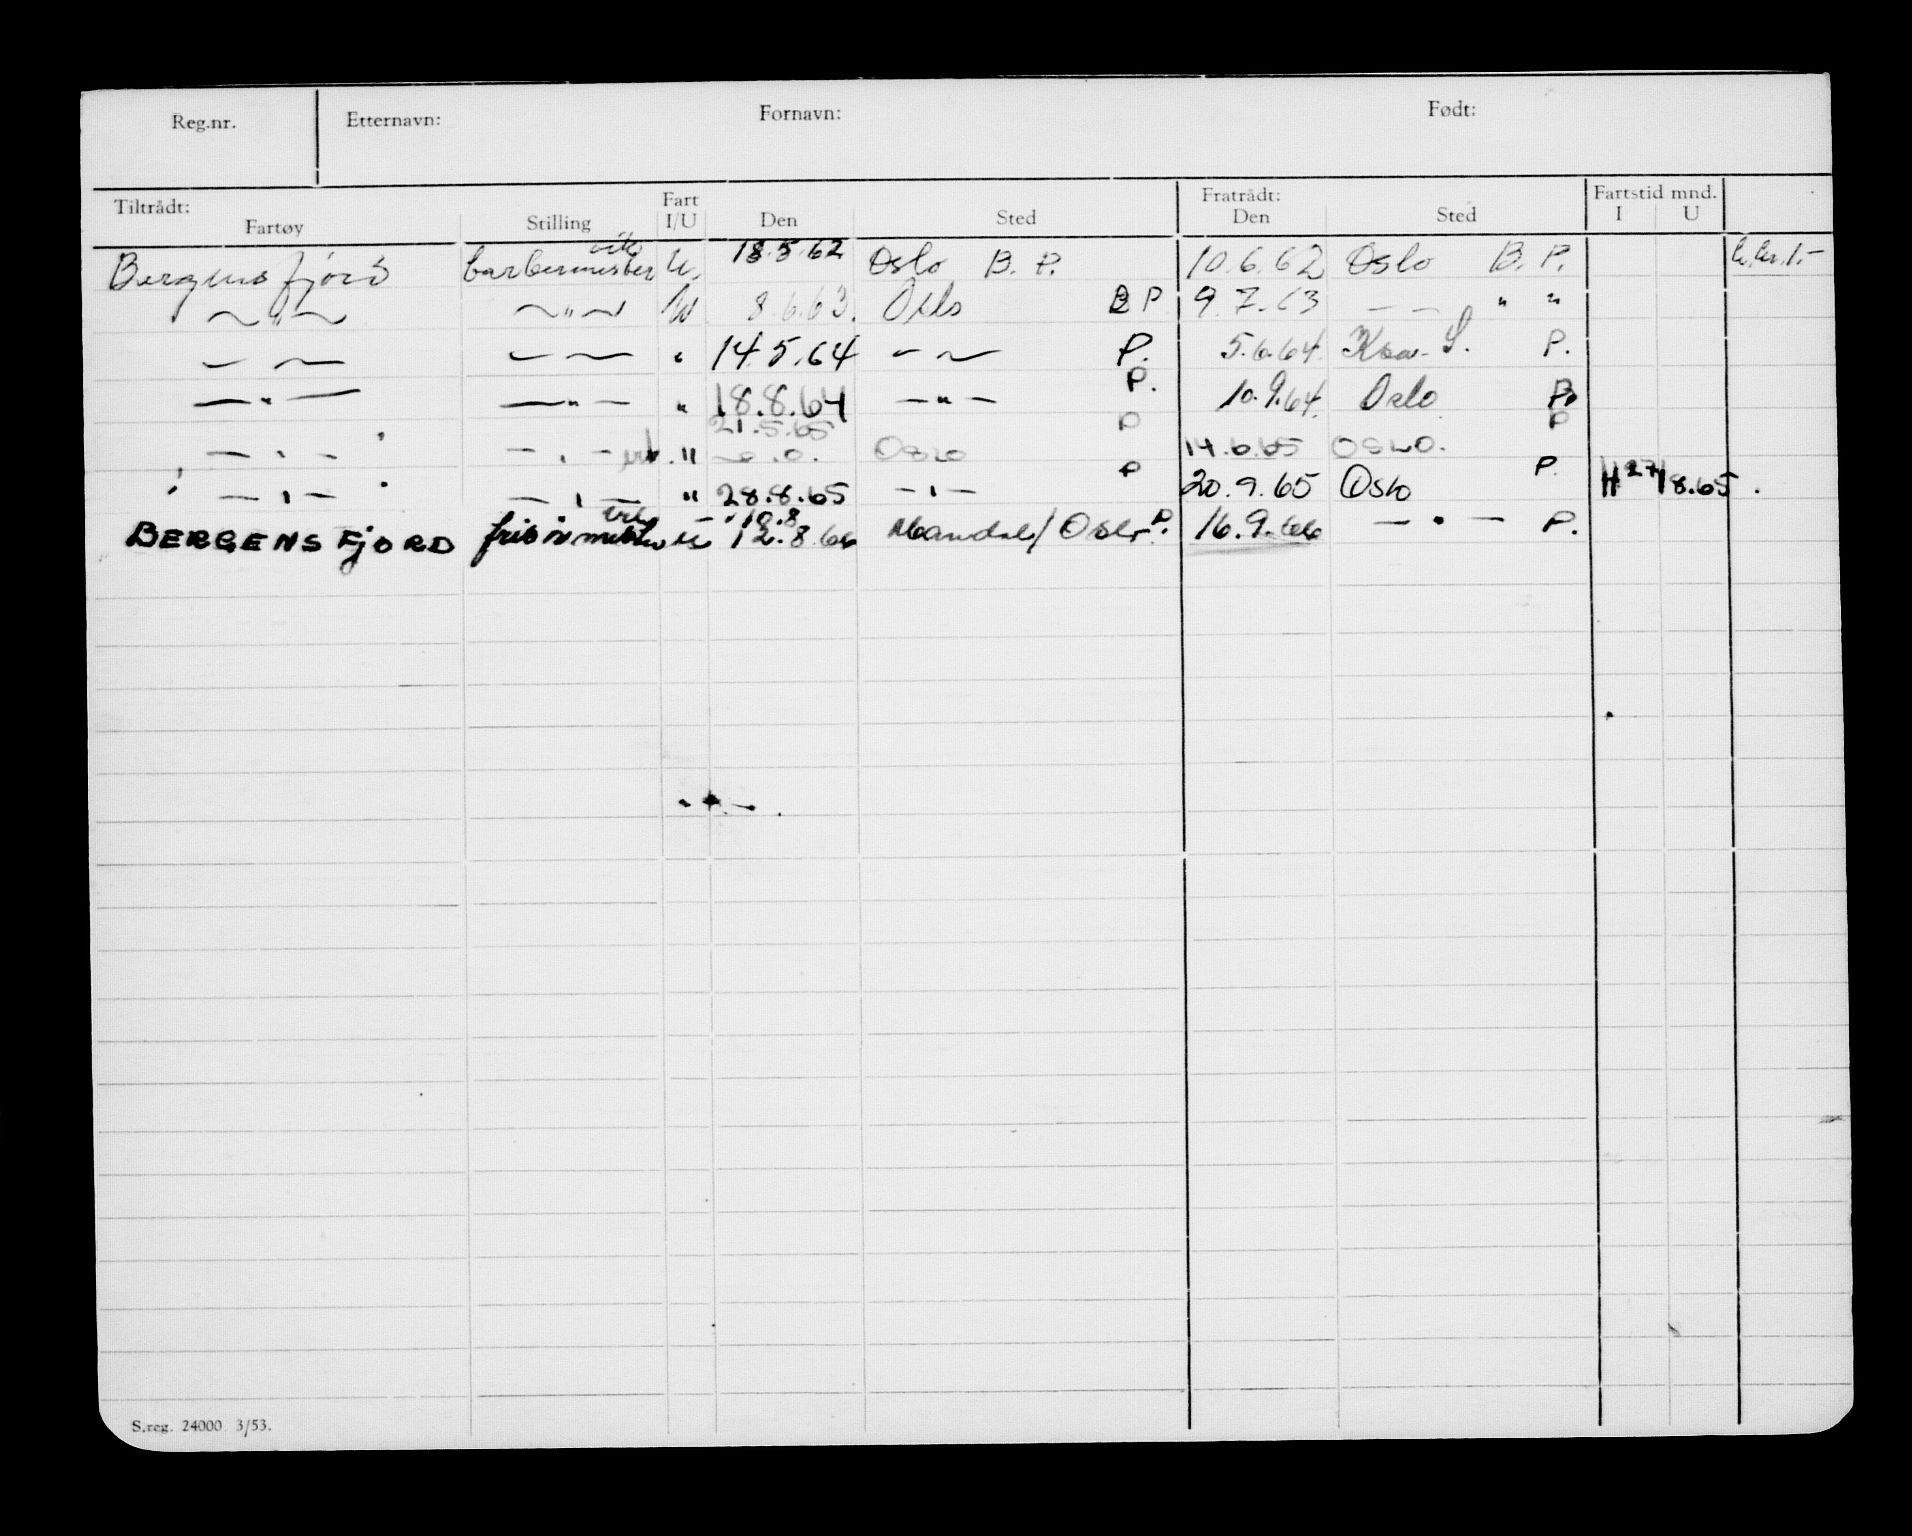 Reg.nr. Etternavn: Fornavn: Født:
Tiltrådt: Fart Fratrådt: Fartstid mnd.
Fartøy Stilling I/U Den Sted Den Sted I U
Bergensfjord barbermester U. 18.5.62 Oslo B. P. 10.6.62 Oslo B. P.
〜 " 〜 〜 " 〜 U 8.6.63. Oslo B P 9.7.63 — — " "
— — — — " 14.5.64 — — P. 5.6.64. P.
— " — — " — " 18.8.64 — " — P. 10.9.64. Oslo P.
— " — — " — vik. " 21.5.65 Oslo P 14.6.65 OSLO. P
— " — — " — " 28.8.65 — " — P 20.9.65 Oslo P. H 27/8.65.
BERGENSFJORD frisørmester vik U 10.8 12.8.66 Mandal/Oslo P. 16.9.66 — " — P.
S.reg. 24000 3/53.